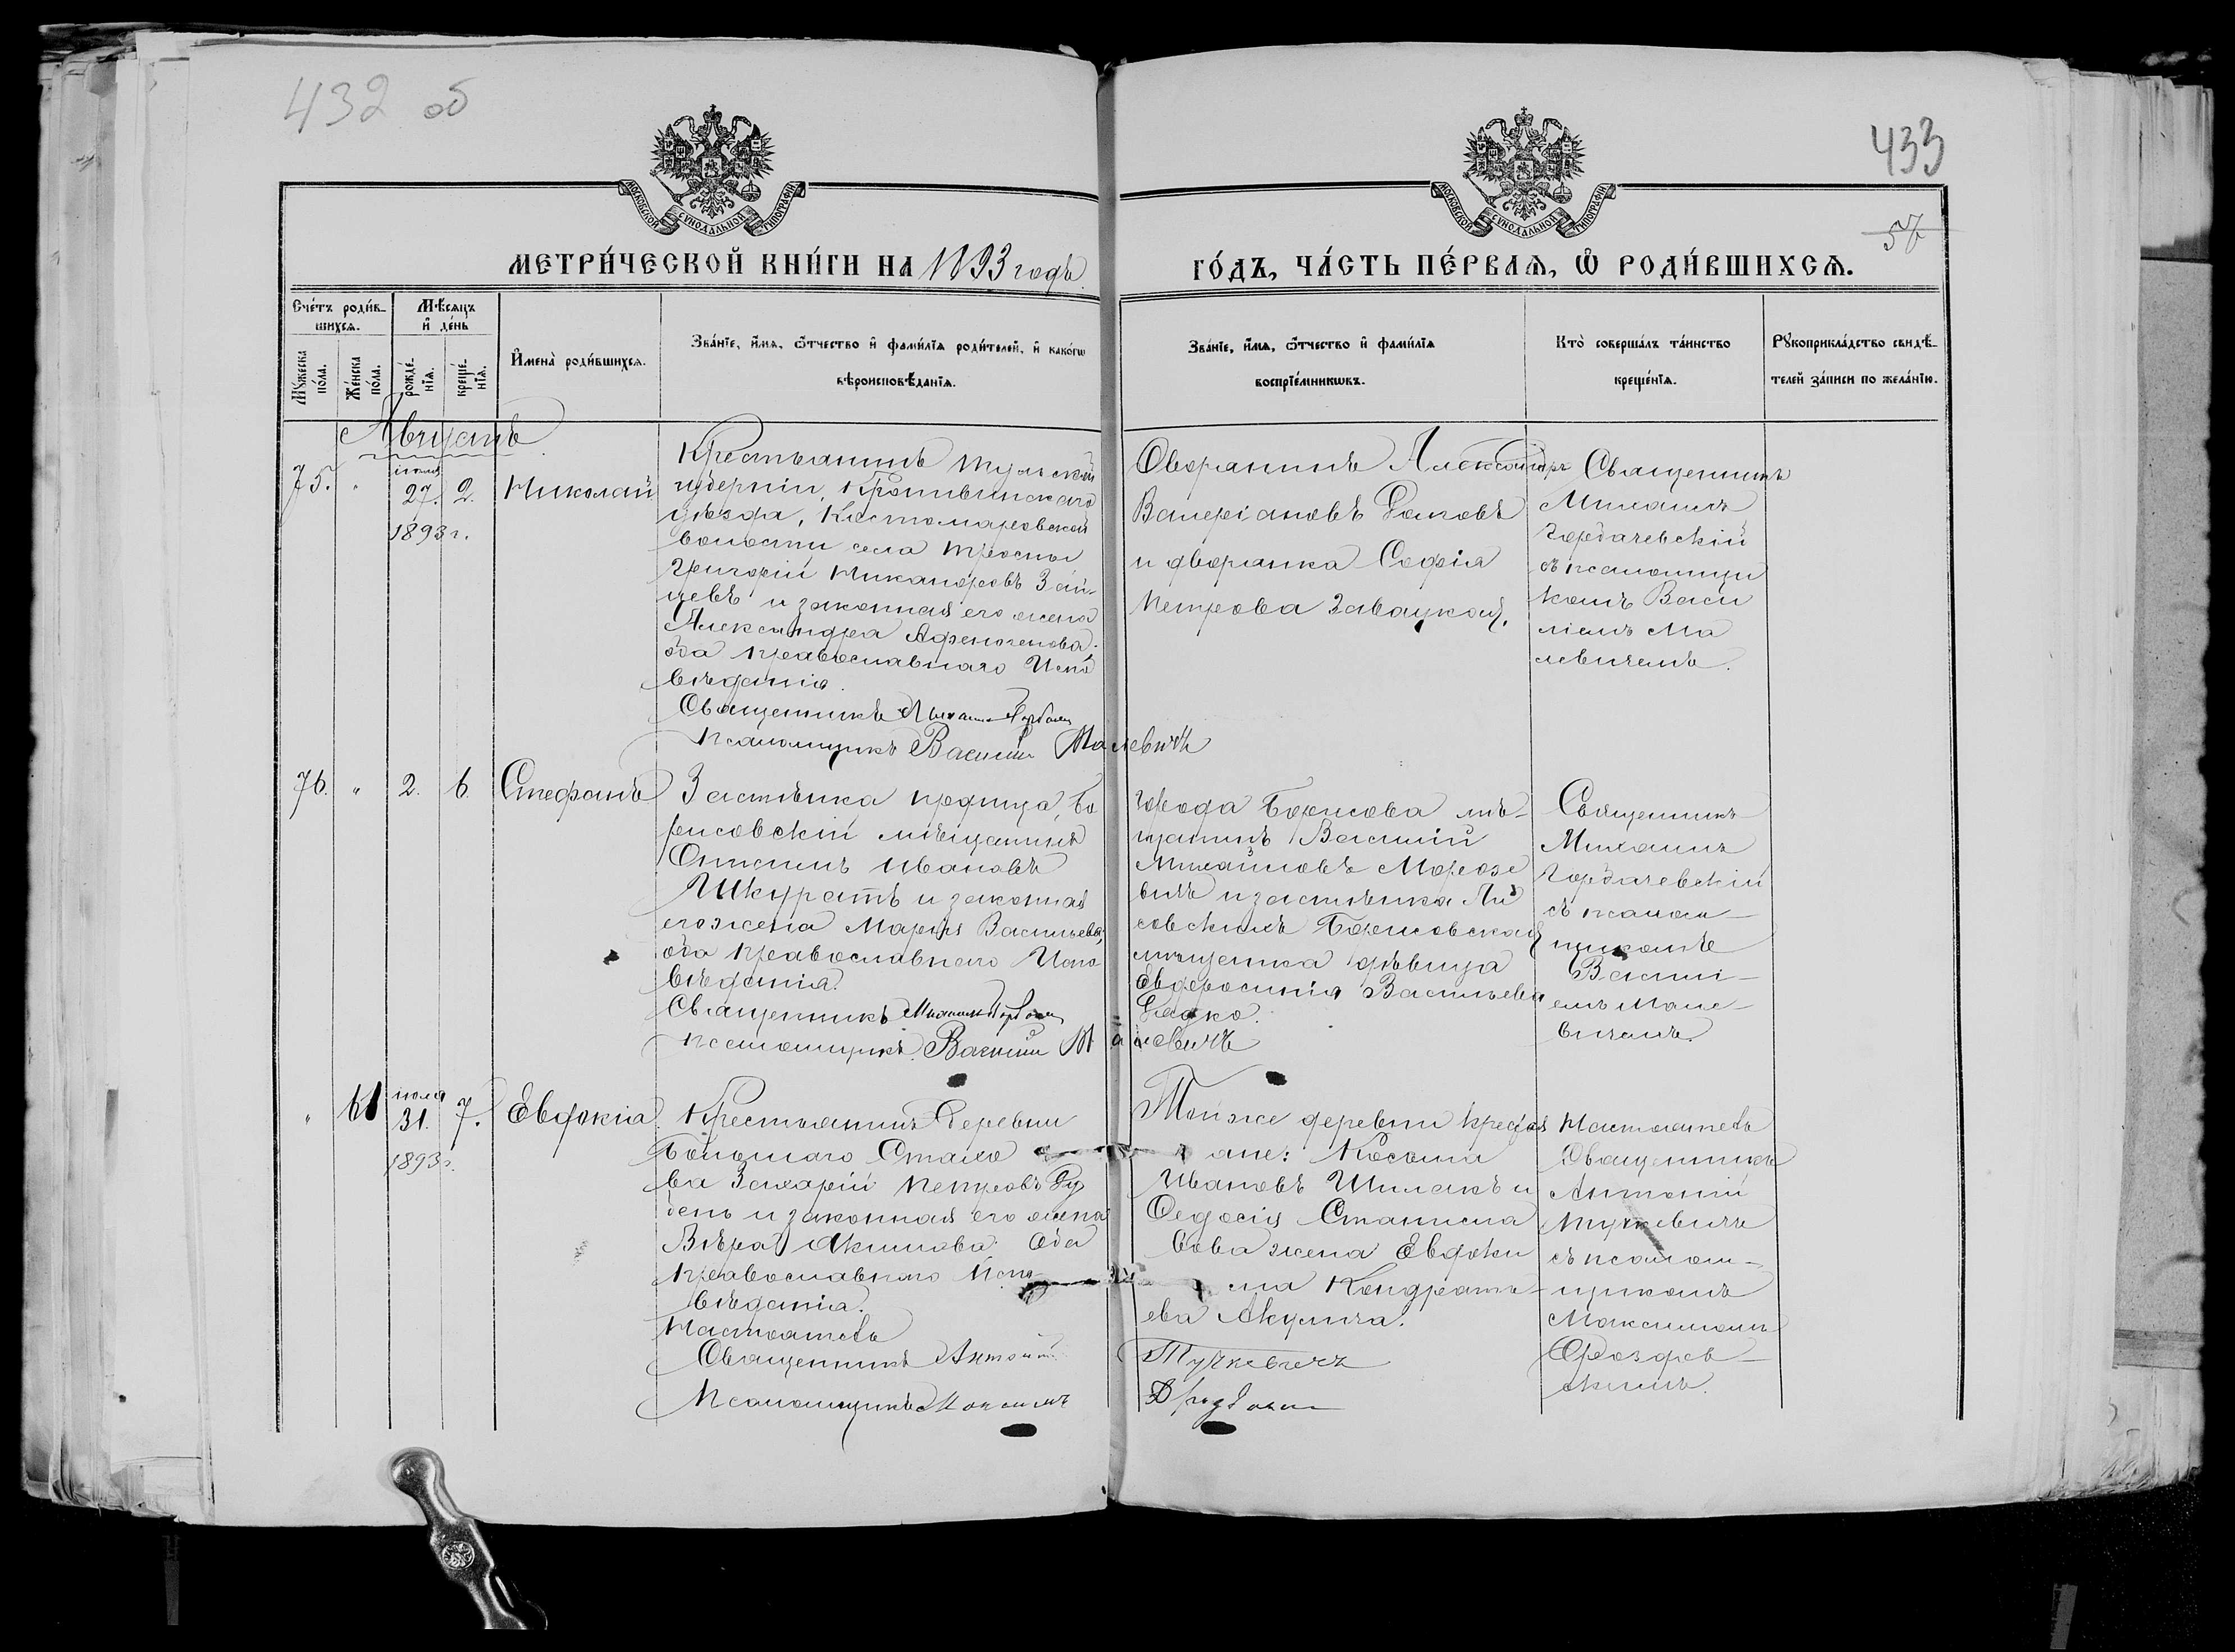 432 об
433
57
МОСКОВСКОЙ СѴНОДАЛЬНОЙ ТИПОГРАФІИ
МОСКОВСКОЙ СѴНОДАЛЬНОЙ ТИПОГРАФІИ
МЕТРИ́ЧЕСКОЙ КНИ́ГИ НА 1893 годъ.
ГО́ДЪ, ЧА́СТЬ ПЕ́РВАѦ, Ѽ РОДИ́ВШИХСѦ.
Сче́тъ роди́в-
шихсѧ.
Мѣ́сѧцъ
и҆ де́нь
Мꙋ́жеска
по́ла.
Же́нска
по́ла.
рожде́-
нїѧ.
креще́-
нїѧ.
И҆мена̀ роди́вшихсѧ.
Зва́нїе, и҆́мѧ, ѻ҆́тчество и҆ фами́лїѧ роди́телей, и҆ како́гѡ
вѣроисповѣ́данїѧ.
Зва́нїе, и҆́мѧ, ѻ҆́тчество и҆ фами́лїѧ
воспрїе́мникѡвъ.
Кто̀ соверша́лъ та́инство
креще́нїѧ.
Рꙋкоприкла́дство свидѣ́-
телей за́писи по жела́нїю.
Августъ
75. " іюля 27. 1893 г. 2. Николай
Крестьянинъ Тульской
губерніи, Крапивинскаго
уѣзда, Костомаровской
волости села Тросны
Григорій Никаноровъ Зай-
цевъ и законная его жена
Александра Афиногенова.
оба православнаго Испо
вѣданія.
Священникъ Михаилъ
Псаломщикъ Василій Малевичъ
Дворянинъ Александръ
Валеріановъ
и дворянка Софія
Петрова Завацкая.
Священникъ
Михаилъ
Гордачевскій
съ псаломщи
комъ Васи
ліемъ Ма
левичемъ.
76. " 2. 6. Стефанъ
Застѣнка Бо
рисовскій мѣщанинъ
Онисимъ Ивановъ
Шкуратъ и законная
его жена Марія Васильева,
оба православнаго Испо
вѣданія.
Священникъ Михаилъ
Псаломщикъ Василій Малевичъ
города Борисова мѣ-
щанинъ Василій
Михайловъ Морозе
вичъ и застѣнка Ли
совскихъ Борисовская
мѣщанка дѣвица
Евфросинія Васильева
Священникъ
Михаилъ
Гордачевскій
съ псалом-
щикомъ
Васили-
емъ Мале-
вичемъ.
" 61 іюля 31. 1893 г. 7. Евдокія.
Крестьянинъ деревни
Большаго Стахо
ва Захарій Петровъ Ру
день и законная его жена
Вѣра Акимова. Оба
православнаго Испо-
вѣданія.
Настоятель
Священникъ Антоній
Псаломщикъ Максимъ
Той же деревни крестья
ане: Косьма
Ивановъ Шилакъ и
Ѳедосія Станисла
вова жена Евдоки
ма Кондрать-
ева Акулича.
Тучкевичъ
Настоятель
Священникъ
Антоній
Тучкевичъ
съ псалом-
щикомъ
Максимомъ
Дроздов-
скимъ.